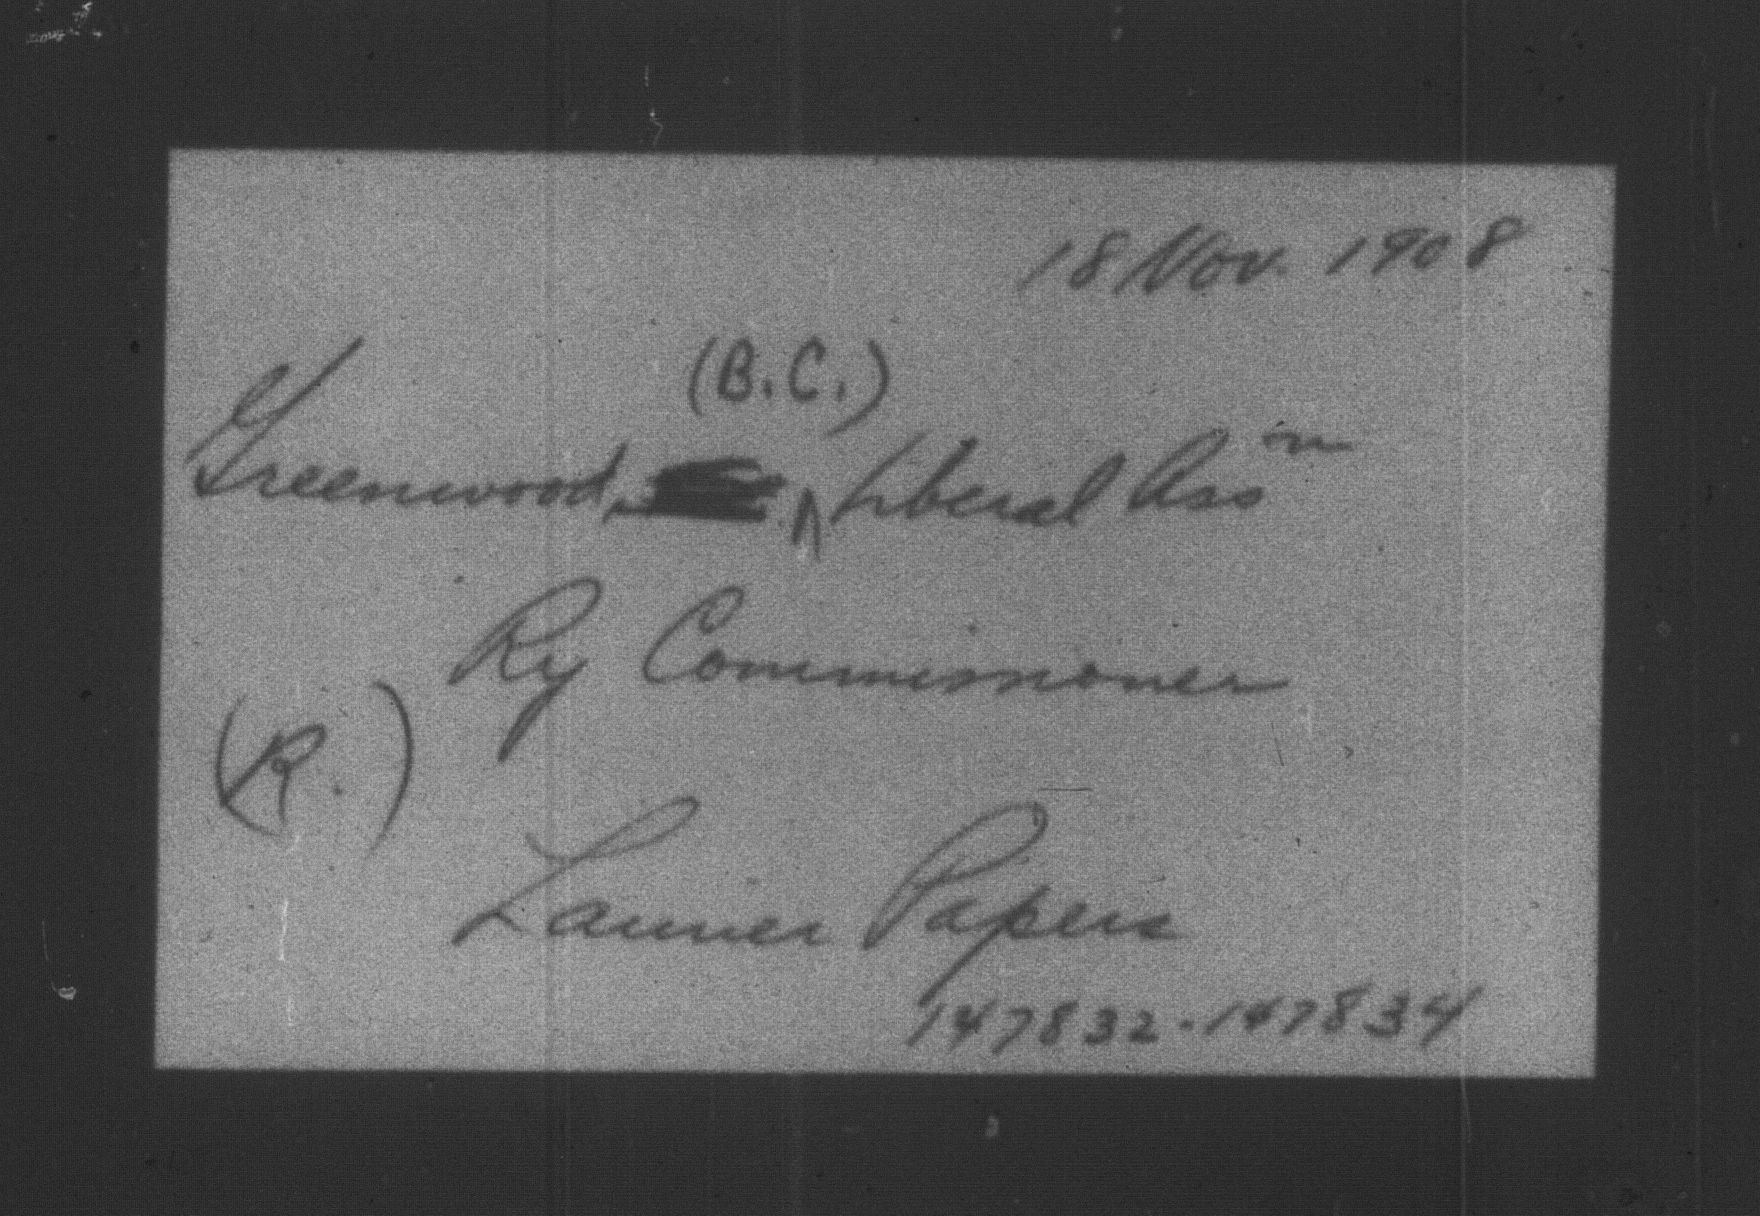 18 Nov. 1908
(B.C.)
Greenwood, ^ Liberal Ass'n
Ry Commissioner
(R.)
Laurier Papers
147832-147834